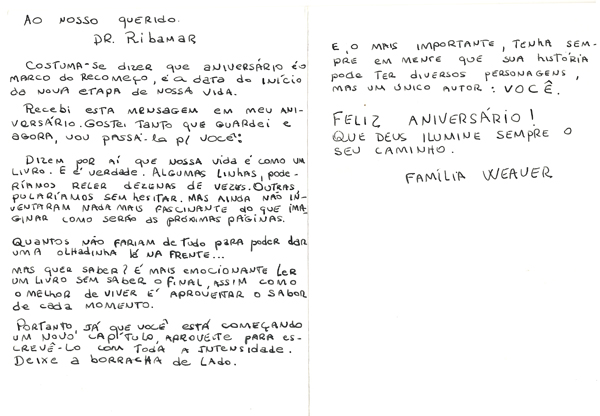 AO NOSSO QUERIDO.
DR. RIBAMAR
COSTUMA-SE DIZER QUE ANIVERSÁRIO É O
MARCO DO RECOMEÇO, E A DATA DO INÍCIO
DA NOVA ETAPA DE NOSSA VIDA.
RECEBI ESTA MENSAGEM EM MEU ANI-
VERSÁRIO. GOSTEI TANTO QUE GUARDEI E
AGORA, VOU PASSÁ-LA P/ VOCÊ:
DIZEM POR AÍ QUE NOSSA VIDA É COMO UM
LIVRO. E É VERDADE. ALGUMAS LINHAS, PODE-
RÍAMOS RELER DEZENAS DE VEZES. OUTRAS
PULARÍAMOS SEM HESITAR. MAS AINDA NÃO IN-
VENTARAM NADA MAIS FASCINANTE DO QUE IMA-
GINAR COMO SERÃO AS PRÓXIMAS PÁGINAS.
QUANTOS NÃO FARIAM DE TUDO PARA PODER DAR
UMA OLHADINHA LÁ NA FRENTE...
MAS QUER SABER? É MAIS EMOCIONANTE LER
UM LIVRO SEM SABER O FINAL, ASSIM COMO
O MELHOR DE VIVER É APROVEITAR O SABOR
DE CADA MOMENTO.
PORTANTO, JÁ QUE VOCÊ ESTÁ COMEÇANDO
UM NOVO CAPÍTULO, APROVEITE PARA ES-
CREVÊ-LO COM TODA A INTENSIDADE.
DEIXE A BORRACHA DE LADO.
E, O MAIS IMPORTANTE, TENHA SEM-
PRE EM MENTE QUE SUA HISTÓRIA
PODE TER DIVERSOS PERSONAGENS,
MAS UM ÚNICO AUTOR: VOCÊ.
FELIZ ANIVERSÁRIO!
QUE DEUS ILUMINE SEMPRE O
SEU CAMINHO.
FAMÍLIA WEAVER